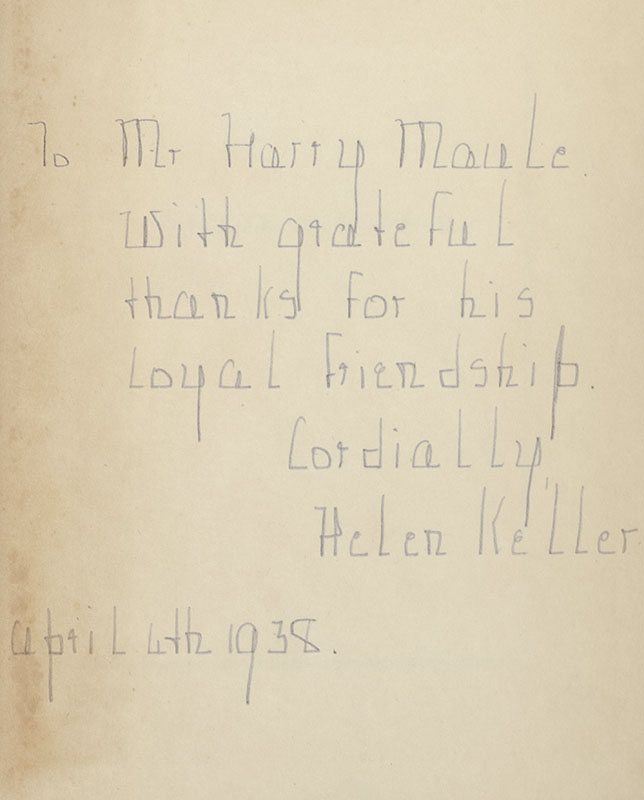 To Mr Harry Maule.
With grateful
thanks for his
loyal friendship.
Cordially,
Helen Keller
april 4th 1938.